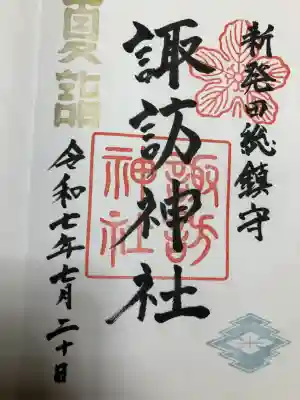 新発田総鎮守
諏訪神社
諏訪
神社
夏詣
令和七年七月二十日